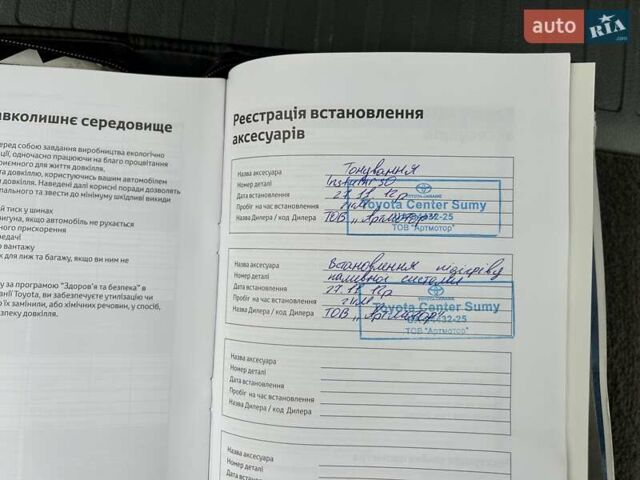 auto RIA .com
авколишнє середовище
еред собою завдання виробництва екологічно
ції, одночасно працюючи на благо процвітання
риємного для життя довкілля.
та довкіллю, користуючись вашим автомобілем
о довкілля. Наведені далі корисні поради дозволять
пального та звести до мінімуму шкідливі викиди
й тиск у шинах
игуна, якщо автомобіль не рухається
ного прискорення
редачі
о вантажу
к для лиж та багажу, якщо ви ним не
у за програмою "Здоров'я та безпека" в
анії Toyota, ви забезпечуєте утилізацію чи
їх замінили, або хімічних речовин, у спосіб,
зпеку довкілля.
Реєстрація встановлення
аксесуарів
Назва аксесуара Тонування
Номер деталі
Дата встановлення
Пробіг на час встановлення
Назва Дилера / код Дилера ТОВ „Артмотор"
TOYOTA UKRAINE
Toyota Center Sumy
32-25
ТОВ "Артмотор"
Назва аксесуара Встановлення підігріву
Номер деталі паливної системи
Дата встановлення
Пробіг на час встановлення
Назва Дилера / код Дилера ТОВ „Артмотор"
TOYOTA UKRAINE
Toyota Center Sumy
32-25
ТОВ "Артмотор"
Назва аксесуара
Номер деталі
Дата встановлення
Пробіг на час встановлення
Назва Дилера / код Дилера
Назва аксесуара
Номер деталі
Дата встановлення